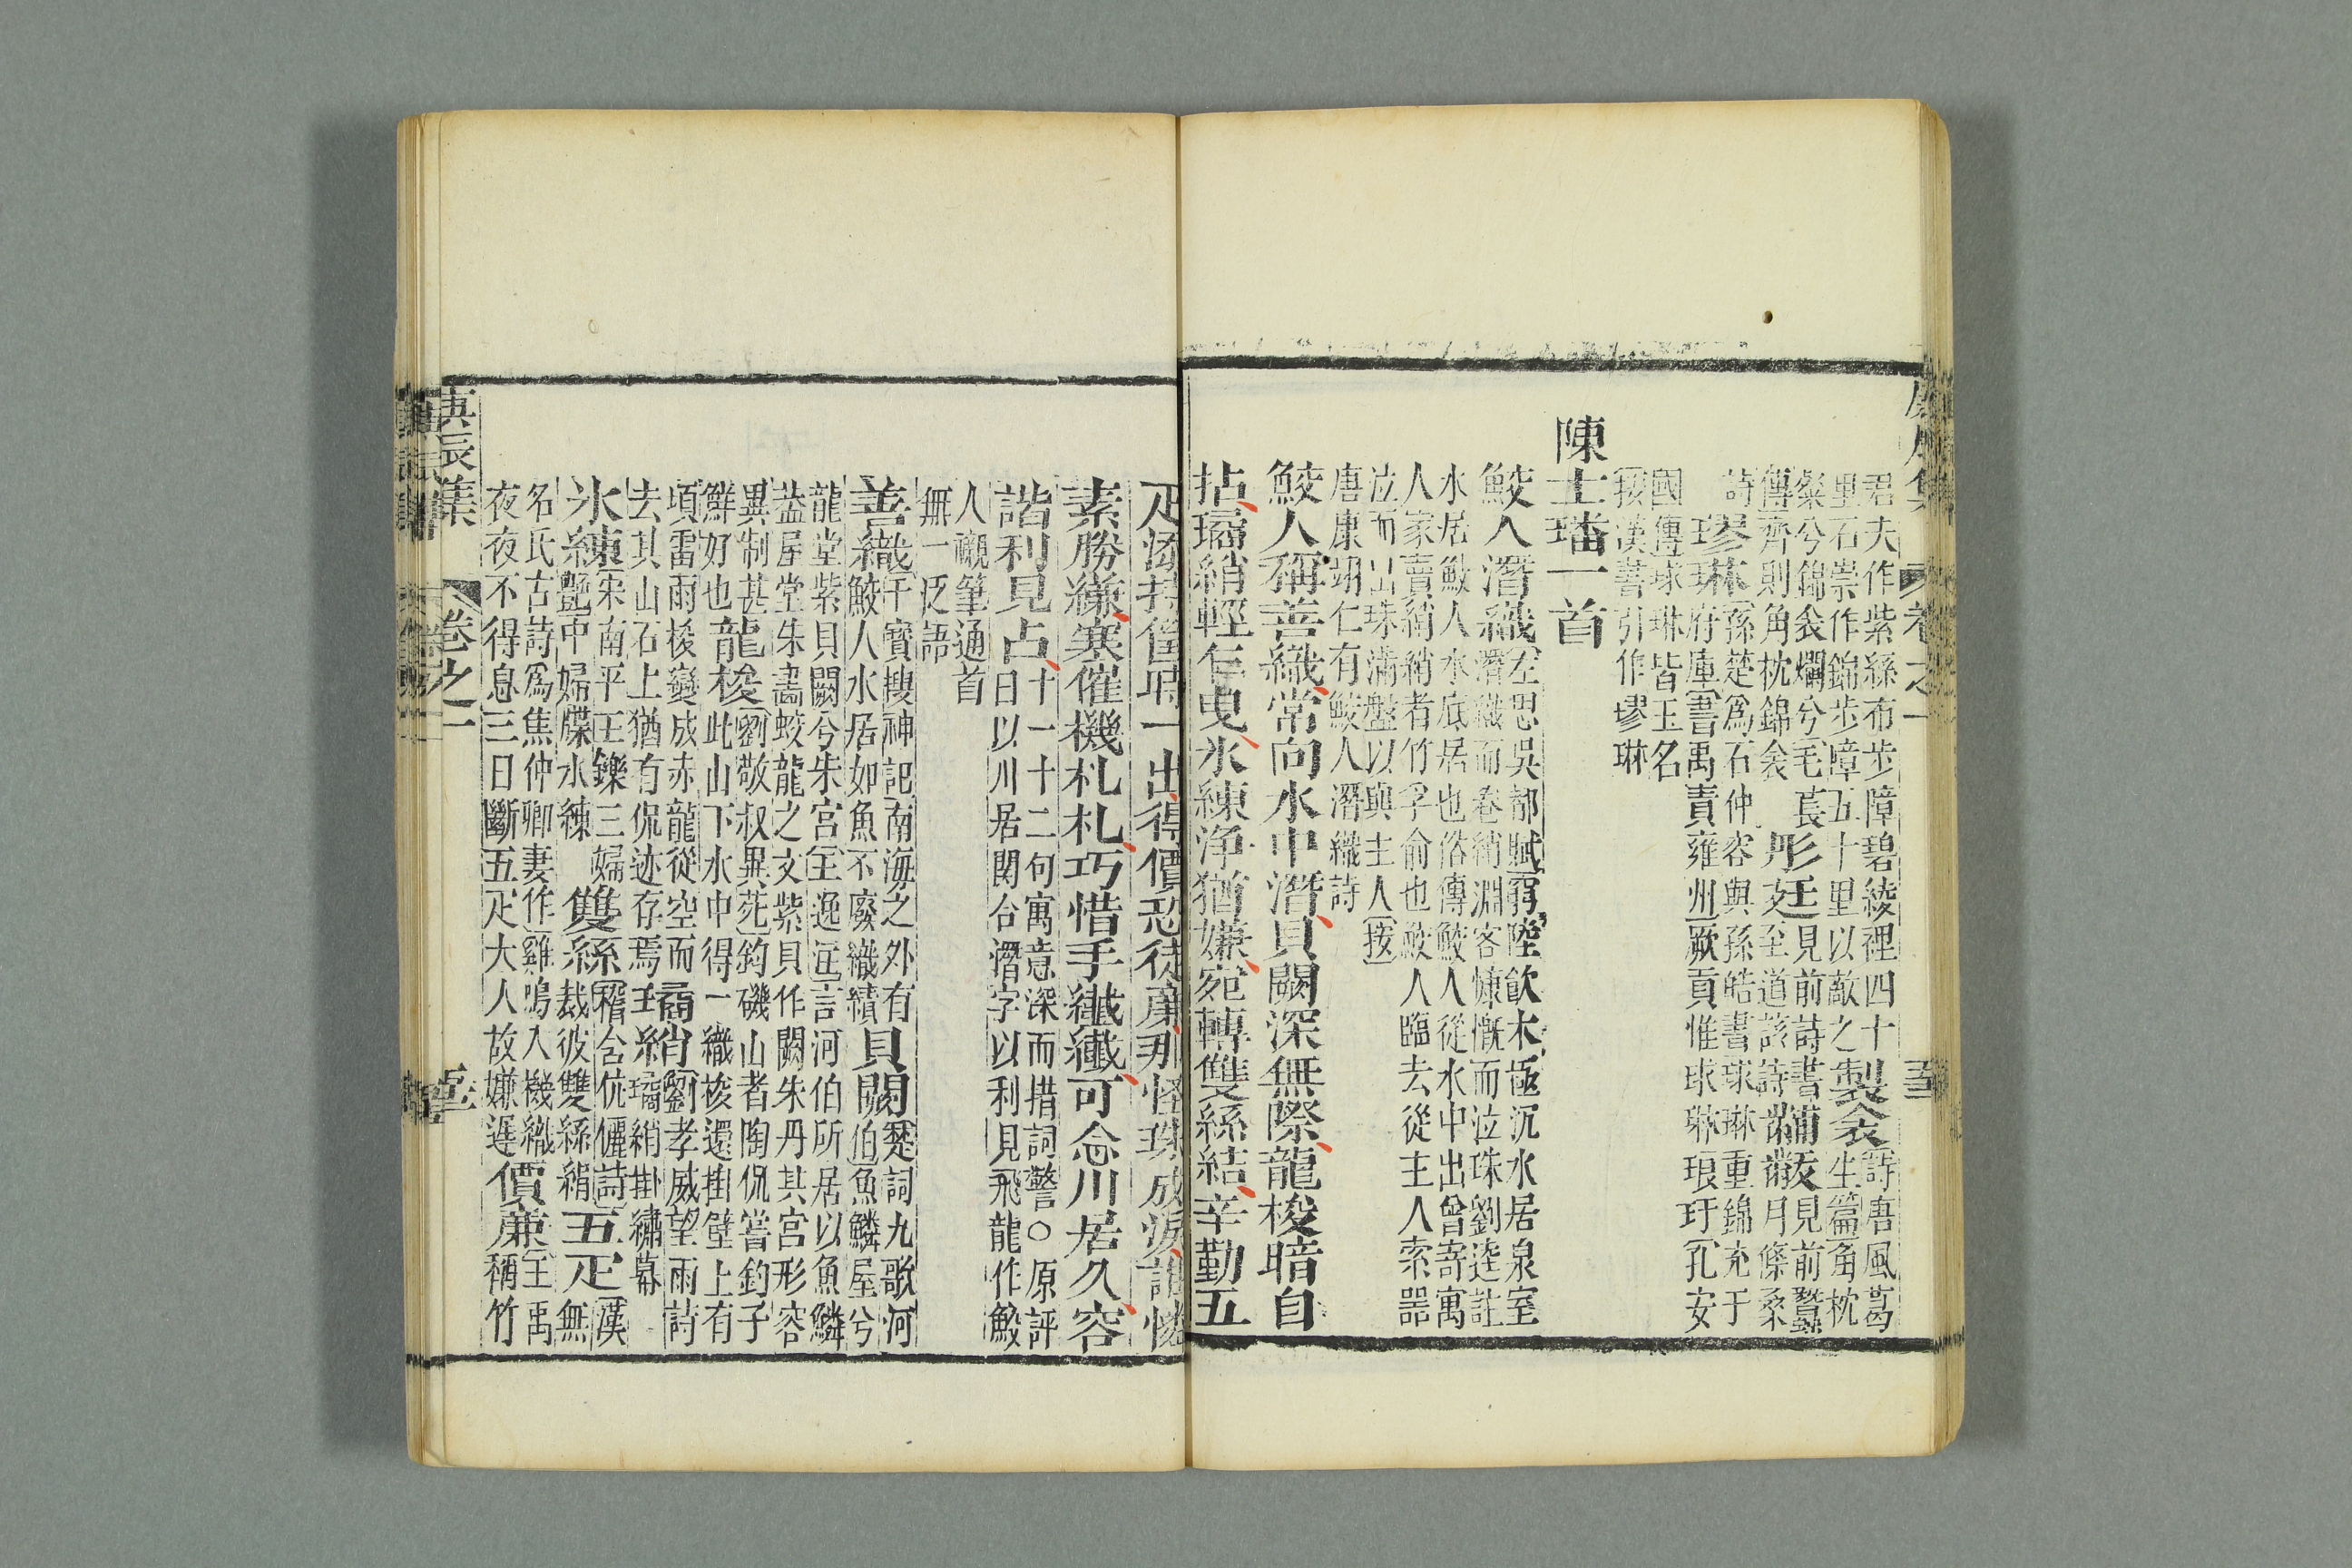 君夫作紫絲布步障碧綾裡四十
里石崇作錦步障五十里以敵之製衾詩唐風葛
生篇角枕
粲兮錦衾爛兮毛萇
傳齊則角枕錦衾彤廷見前詩書黼
詩
璆琳孫楚為石仲容與孫皓書球琳重錦充于
府庫書禹貢雍州厥貢惟球琳琅玕孔安
國傳球琳皆玉名
按漢書引作璆琳
陳士璠一首
鮫人潛織左思吳都賦窮陸飲木極沉水居泉室
潛織而卷綃淵客慷慨而泣珠劉逵註
水居鮫人水底居也俗傳鮫人從水中出曾寄寓
人家賣綃綃者竹孚俞也鮫人臨去從主人索器
泣而出珠滿盤以與主人按
唐康翊仁有鮫人潛織詩
鮫人稱善織常向水中潛貝闕深無際龍梭暗自
拈璚綃輕乍曳氷練淨猶嫌宛轉雙絲結辛勤五
疋添持筐時一出得價恐徒廉那怪珠成淚
素勝縑寒催機札札巧惜手纖纖可念川居久容
諧利見占十一十二句寓意深而措詞警○原評
曰以川居関合潛字以利見飛龍作鮫
人襯筆通首
無一泛語
善織干寶搜神記南海之外有
鮫人水居如魚不廢織績貝闕楚詞九歌河
伯魚鱗屋兮
龍堂紫貝闕兮朱宮王逸註言河伯所居以魚鱗
葢屋堂朱畵蛟龍之文紫貝作闕朱丹其宮形容
異制甚
鮮好也龍梭劉敬叔異苑釣磯山者陶侃嘗釣于
此山下水中得一織梭還掛壁上有
頃雷雨梭變成赤龍從空而
去其山石上猶有侃迹存焉璚綃劉孝威望雨詩
璚綃掛繡幕
氷練宋南平王鑠三婦
艷中婦牒水練雙絲稽含伉儷詩
裁彼雙絲絹五疋漢無
名氏古詩為焦仲卿妻作雞鳴入機織
夜夜不得息三日斷五疋大人故嫌遲價廉王禹
稱竹
庚辰集
卷之一